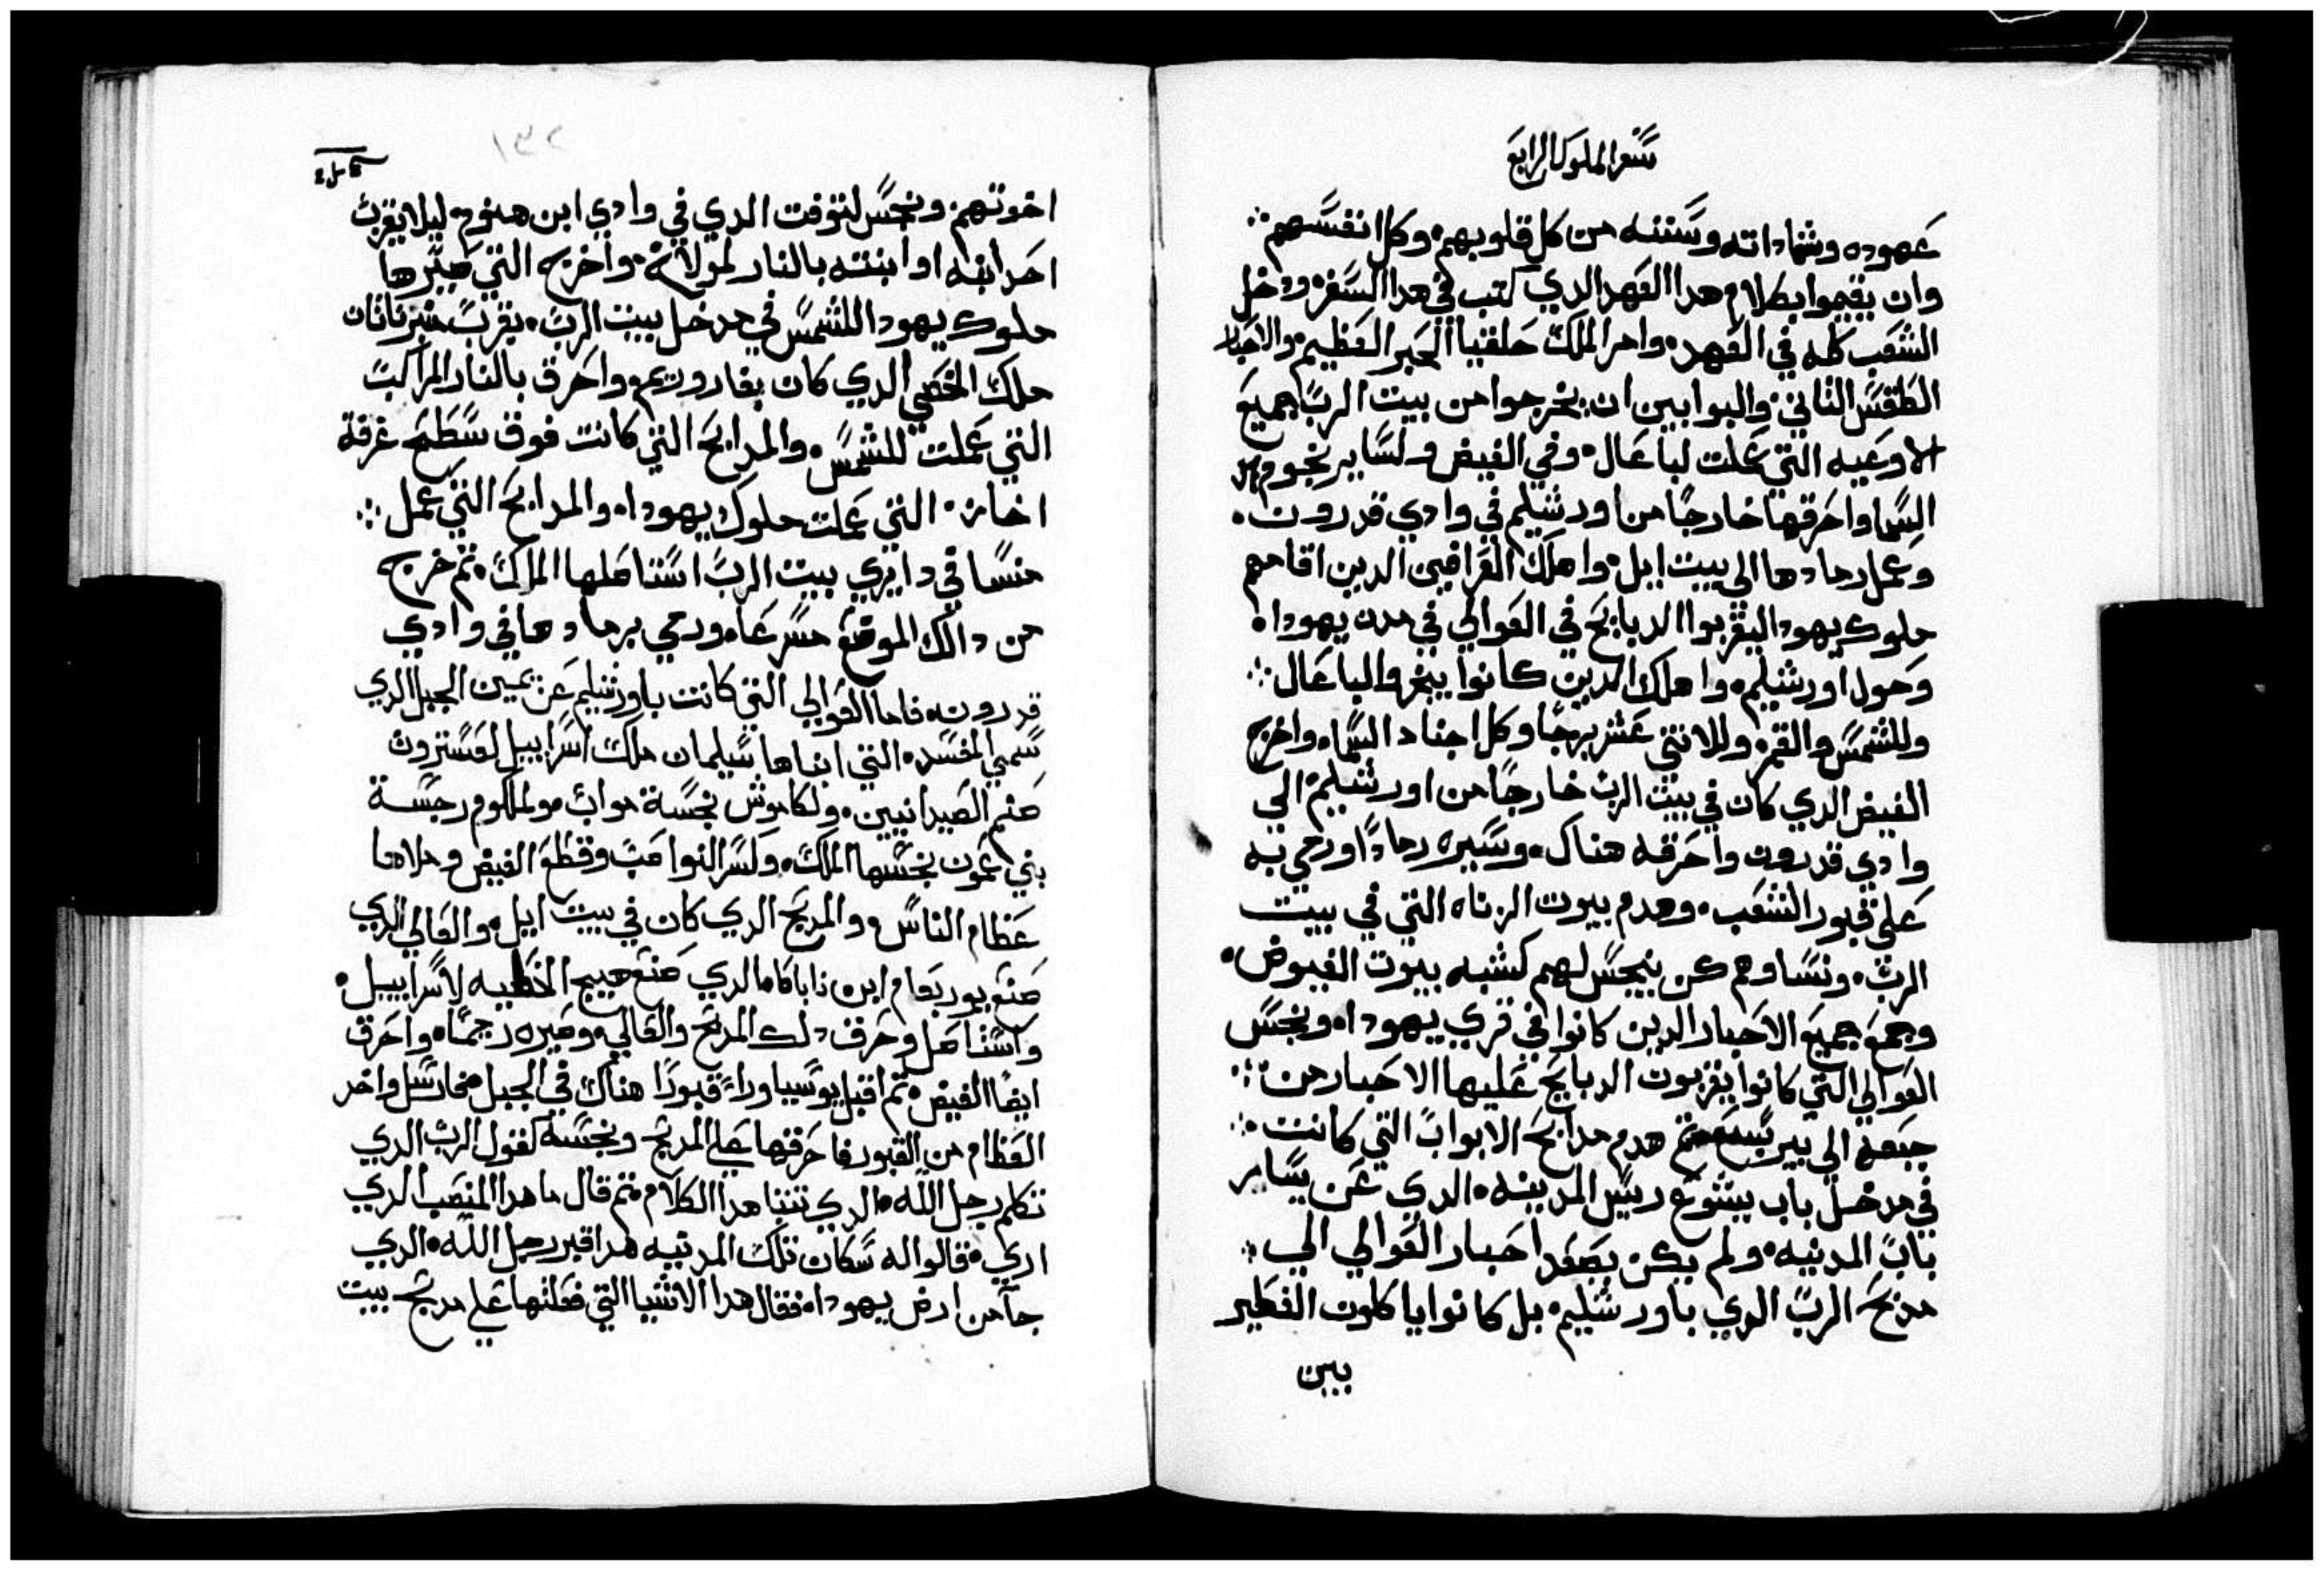 سفر الملوك الرابع
عهوده وشهاداته وسننه من كل قلوبهم وكل انفسهم
وان يقيموا بكلام هدا العهد الدي كتب في هدا السفر ودخل
الشعب كله في العهد وامر الملك حلقيا الحبر العظيم والاحبار
الطقس الثاني والبوابين ان يخرجوا من بيت الرب جميع
الاوعيه التي عملت لباعال وفي الغيض ولساير نجوم
السما واحرقها خارجا من اورشليم في وادي قدرون
وعمل رمادها الي بيت ايل واهلك العرافين الدين اقامهم
ملوك يهودا ليقربوا الدبايح في العوالي في مدن يهودا
وحول اورشليم واهلك الدين كانوا يبخروا لباعال
وللشمس والقمر وللاتني عشر برجا وكل اجناد السما واخرج
الغيض الدي كان في بيت الرب خارجا من اورشليم الي
وادي قدرون واحرقه هناك وسيره رمادا ورمي به
علي قبور الشعب وهدم بيوت الزناه التي في بيت
الرب ونساوهم كن ينجس لهم كشبه بيوت الغيوض
وجمع جميع الاحبار الدين كانوا في قري يهودا ونجس
العوالي التي كانوا يقربون الدبايح عليها الاحبار من
جبعه الي بير سبع تم هدم مدابح الابواب التي كانت
في مدخل باب يشوع ريس المدينه الدي عن يسار
باب المدينه ولم يكن يصعد احبار العوالي الي
مدبح الرب الدي باورشليم بل كانوا ياكلون الفطير
بين
١٣٢
اخوتهم ونجس لتوفت الدي في وادي ابن هنوم ليلا يقرب
احد ابنه او ابنته بالنار لمولاخ واخرج التي صيرها
ملوك يهودا للشمس في مدخل بيت الرب بقرب
ملك الخصي الدي كان بفادوريم واحرق بالنار المراكب
التي عملت للشمس والمدابح التي كانت فوق سطح غرفة
اخاز التي عملت ملوك يهودا والمدابح التي عمل
منسا في دايري بيت الرب استاصلها الملك تم خرج
من دالك الموضع مسرعا ورمي برمادها في وادي
قدرون فاما العوالي التي كانت باورشليم عن يمين الجبل الدي
سمي المفسد التي ابناها سليمان ملك اسراييل لعستروت
صنم الصيدانيين ولكاموش نجسة مواب ولملكوم رجسة
بني عمون نجسها الملك وكسر النواصب وقطع الغيض وملاها
عظام الناس والمدبح الدي كان في بيت ايل والعالي الدي
صنع يوربعام ابن ناباط الدي صنع جميع الخطيه لاسراييل
واستاصل وحرق دلك المدبح والعالي وصيره رجمة واحرق
ايضا الغيض تم اقبل يوسيا وراء قبورا هناك في الجبل فارسل واخد
العظام من القبور فاحرقها علي المدبح ونجسه كقول الرب الدي
تكلم رجل الله الدي تنبا هدا الكلام تم قال ما هدا المنصب الدي
اري قالوا له سكان تلك المدينه هدا قبر رجل الله الدي
جآ من ارض يهودا فقال هدا الاشيا التي فعلتها علي مدبح بيت